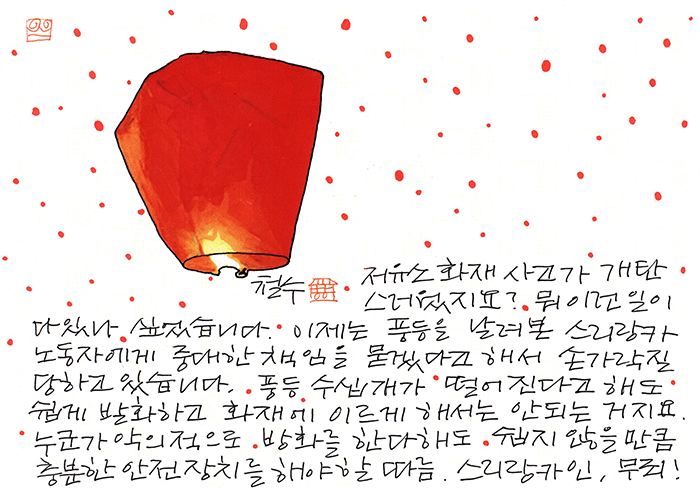 철수
저유소 화재 사고가 개탄
스러웠지요? 뭐 이런 일이
다 있나 싶었습니다. 이제는 풍등을 날려본 스리랑카
노동자에게 중대한 책임을 묻겠다고 해서 손가락질
당하고 있습니다. 풍등 수십개가 떨어진다고 해도
쉽게 발화하고 화재에 이르게 해서는 안되는 거지요.
누군가 악의적으로 방화를 한다해도 쉽지 않을 만큼
충분한 안전장치를 해야할 따름. 스리랑카인, 무죄!